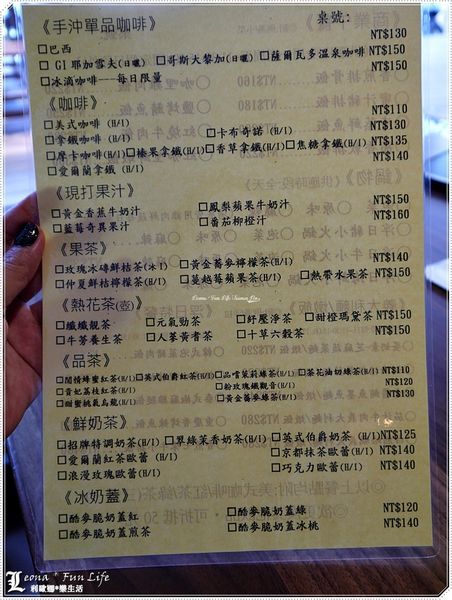 桌號:
《手沖單品咖啡》
☐巴西 NT$130
☐ G1耶加雪夫(日曬) ☐哥斯大黎加(日曬) ☐薩爾瓦多溫泉咖啡 NT$150
☐冰滴咖啡---每日限量 NT$150
《咖啡》
☐美式咖啡 (H/I) NT$110
☐拿鐵咖啡 (H/I) ☐卡布奇諾 (H/I) NT$130
☐摩卡咖啡(H/I) ☐榛果拿鐵(H/I) ☐香草拿鐵(H/I) ☐焦糖拿鐵(H/I) NT$135
☐愛爾蘭拿鐵 (H/I) NT$140
《現打果汁》
☐黃金香蕉牛奶汁 ☐鳳梨蘋果牛奶汁 NT$150
☐藍莓奇異果汁 ☐番茄柳橙汁 NT$160
《果茶》
☐玫瑰冰磚鮮桔茶(冰I) ☐黃金蕎麥檸檬茶(H/I) NT$140
☐仲夏鮮桔檸檬茶(H/I) ☐蔓越莓蘋果茶(H/I) ☐熱帶水果茶 NT$150
Leona * Fun Life
《熱花茶(壺)》
☐纖纖靚茶 ☐元氣勁茶 ☐紓壓淨茶 ☐甜橙瑪黛茶 NT$150
☐牛蒡養生茶 ☐人蔘黃耆茶 ☐十草六穀茶 NT$150
《品茶》
☐閒情蜂蜜紅茶(H/I) ☐英式伯爵紅茶(H/I) ☐品嚐茉莉綠茶(H/I) ☐茶花油切綠茶(H/I) NT$110
☐貴妃荔枝紅茶(H/I) ☐粉玫瑰鐵觀音(H/I) NT$120
☐甜蜜桃氣烏龍(H/I) ☐黃金蕎麥綠茶(H/I) NT$130
《鮮奶茶》
☐招牌特調奶茶(H/I) ☐翠綠茉香奶茶(H/I) ☐英式伯爵奶茶(H/I) NT$125
☐愛爾蘭紅茶歐蕾(H/I) ☐京都抹茶歐蕾(H/I) NT$140
☐浪漫玫瑰歐蕾(H/I) ☐巧克力歐蕾(H/I) NT$140
《冰奶蓋》
☐酷麥脆奶蓋紅 ☐酷麥脆奶蓋綠 NT$120
☐酷麥脆奶蓋煎茶 ☐酷麥脆奶蓋冰桃 NT$140
Leona * Fun Life
利歐娜*樂生活